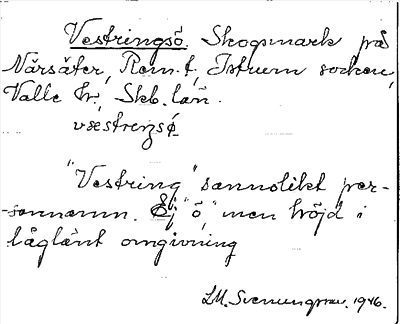 Vestringsö. Skogsmark på
Närsäter, Rem. t, Istrum socken,
Valle hr, Skb. län.
væstreŋsö
"Vestring" sannolikt per-
sonnamn. Ej "ö," men höjd i
låglänt omgivning
1946.